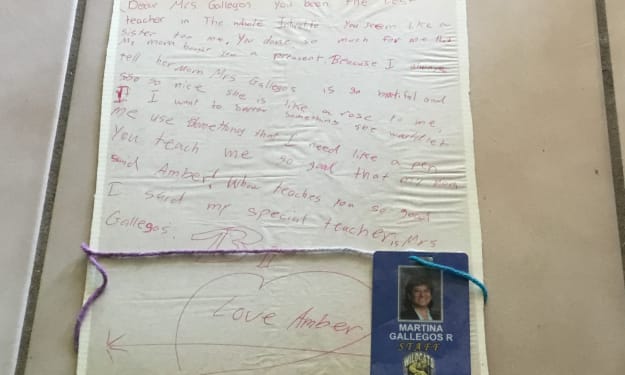 Dear Mrs Gallegos You been the best
teacher in The whole You seem like a
sister too me. You done so much for me that
My mom you a present. Because I
tell her Mom Mrs Gallegos is so and
so nice she is like a rose to me.
I I want to something she
me use something that I need like a pen
You teach me so good that my Mom
said Amber! Whow teaches you so good
I said my special teacher is Mrs
Gallegos.
Love Amber
MARTINA
GALLEGOS R
STAFF